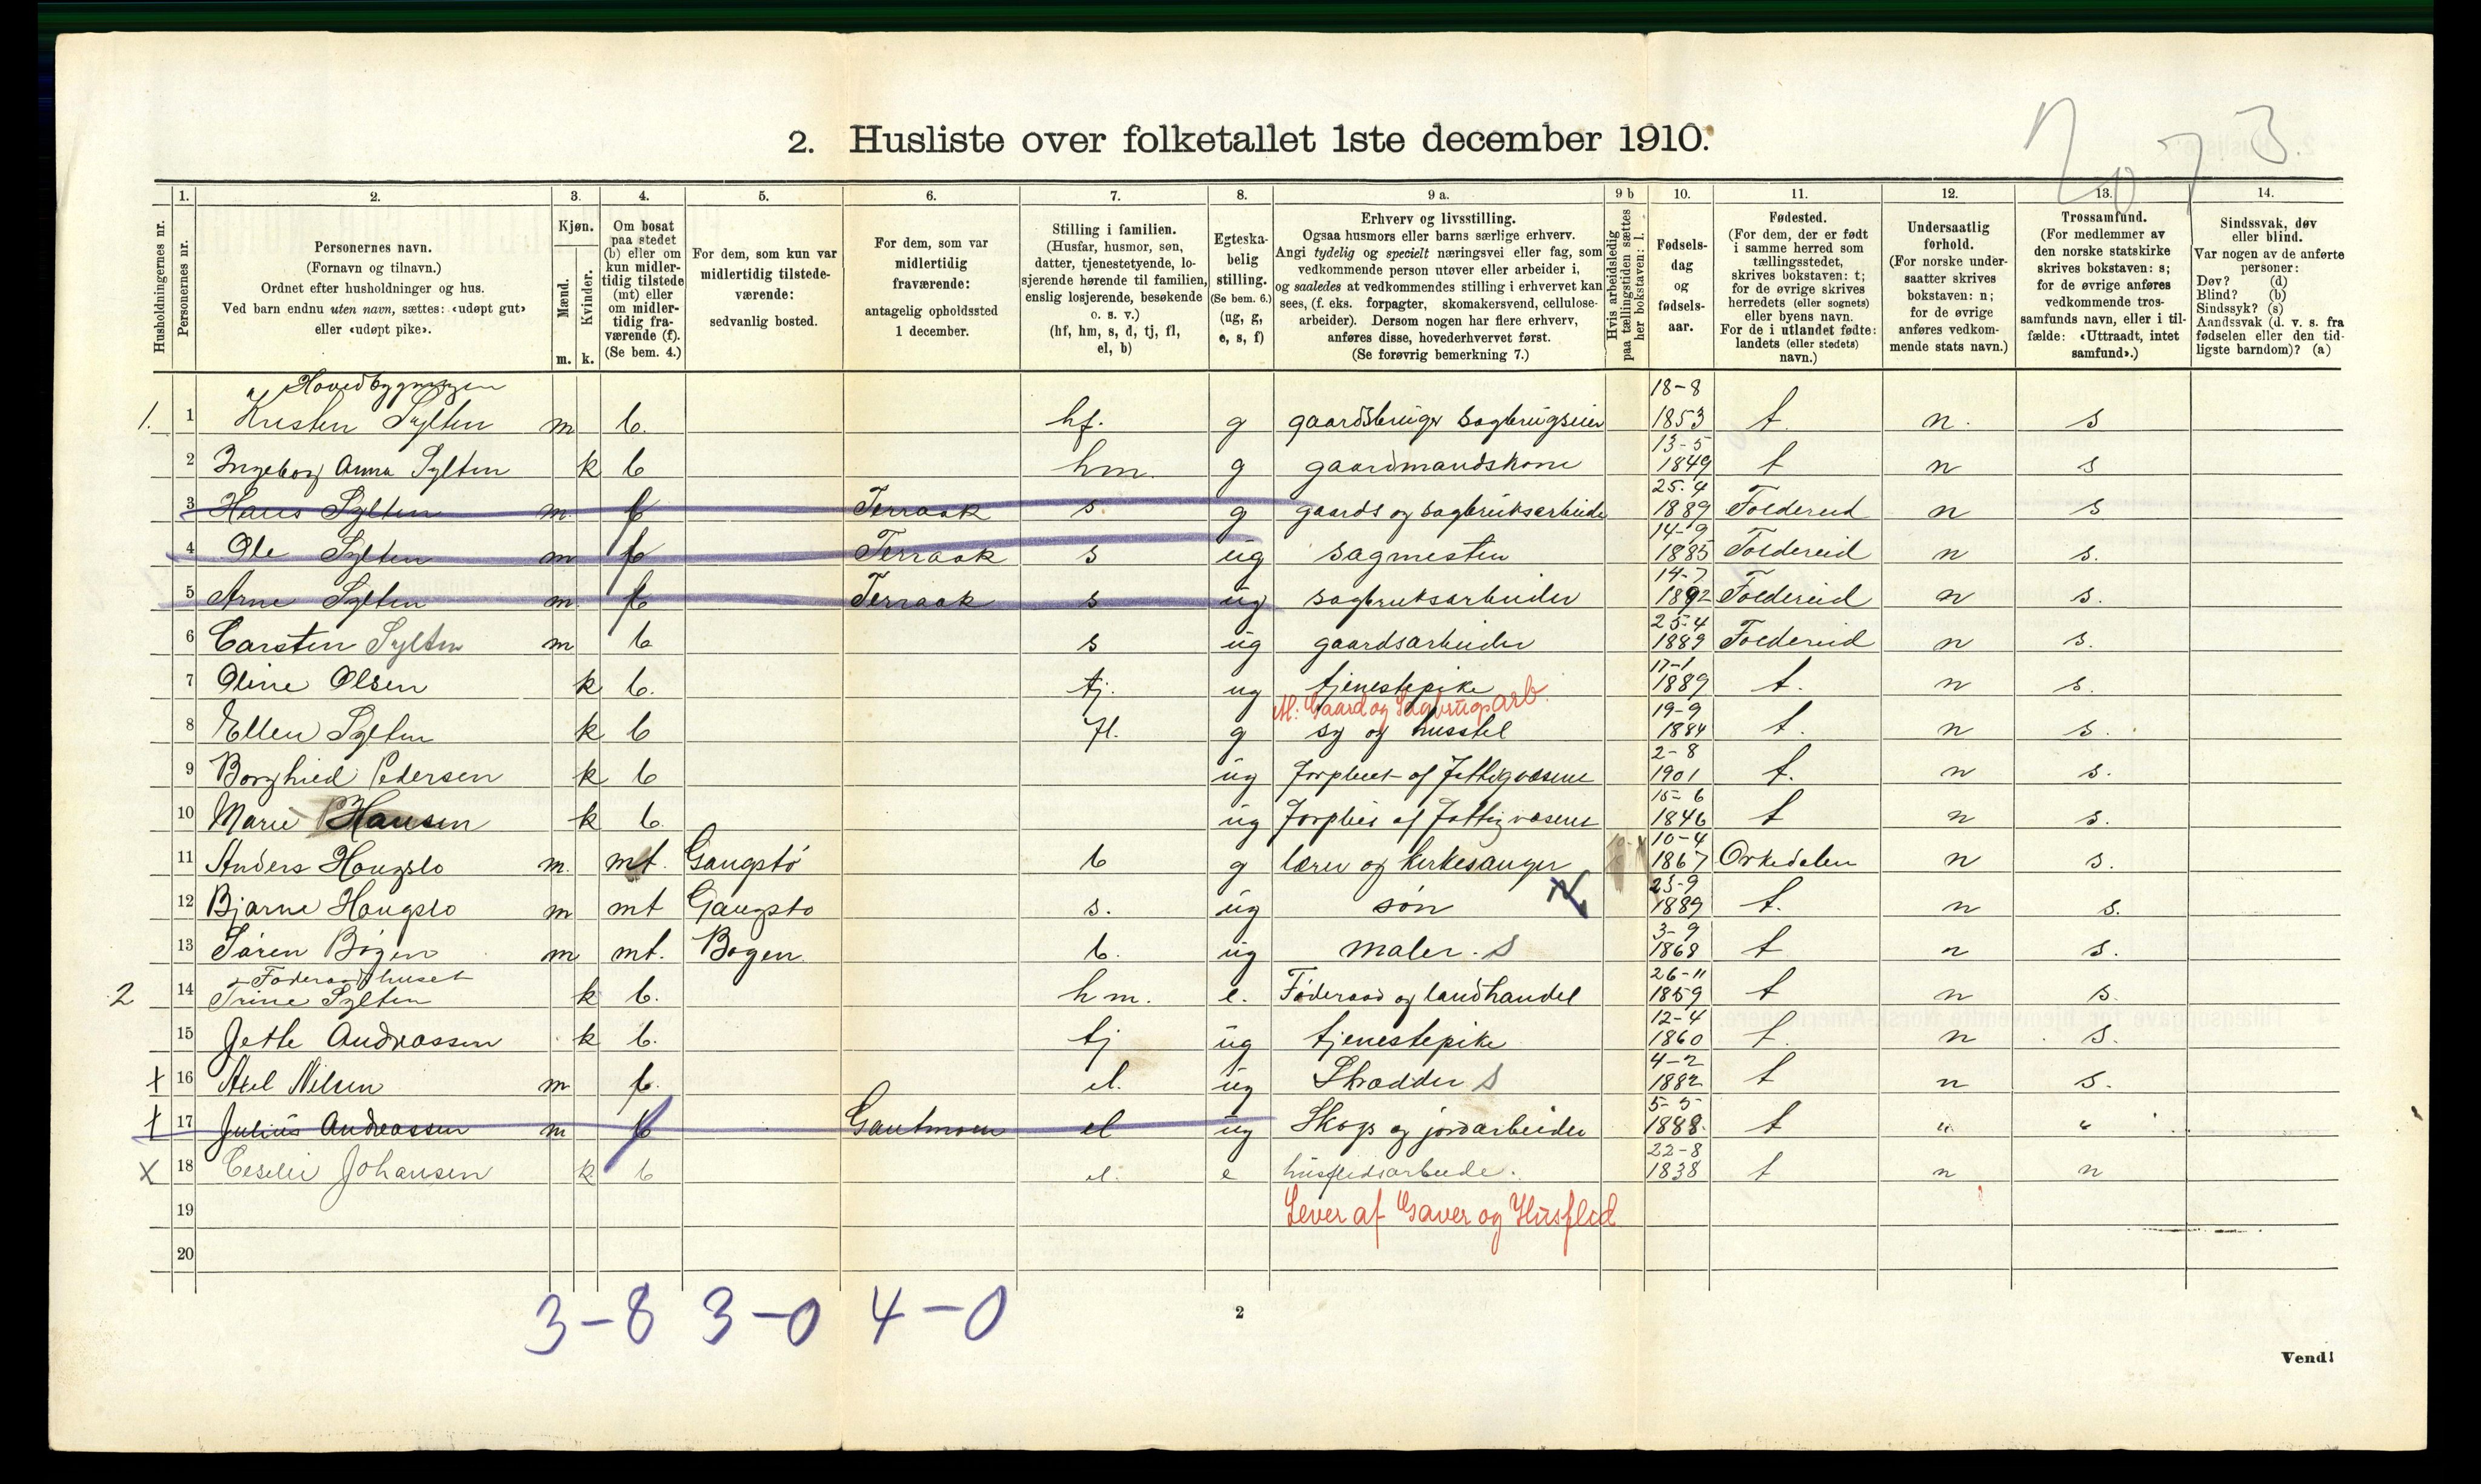 2. Husliste over folketallet 1ste december 1910.
Husholdningernes nr.
1.
Personernes nr.
2.
Personernes navn.
(Fornavn og tilnavn.)
Ordnet efter husholdninger og hus.
Ved barn endnu uten navn, sættes: «udøpt gut»
eller «udøpt pike».
3.
Kjøn.
Mænd.
Kvinder.
m. k.
4.
Om bosat
paa stedet
(b) eller om
kun midler-
tidig tilstede
(mt) eller
om midler-
tidig fra-
værende (f).
(Se bem. 4.)
5.
For dem, som kun var
midlertidig tilstede-
værende:
sedvanlig bosted.
6.
For dem, som var
midlertidig
fraværende:
antagelig opholdssted
1 december.
7.
Stilling i familien.
(Husfar, husmor, søn,
datter, tjenestetyende, lo-
sjerende hørende til familien,
enslig losjerende, besøkende
o. s. v.)
(hf, hm, s, d, tj, fl,
el, b)
8.
Egteska-
belig
stilling.
(Se bem. 6.)
(ug, g,
e, s, f)
9 a.
Erhverv og livsstilling.
Ogsaa husmors eller barns særlige erhverv.
Angi tydelig og specielt næringsvei eller fag, som
vedkommende person utøver eller arbeider i,
og saaledes at vedkommendes stilling i erhvervet kan
sees, (f. eks. forpagter, skomakersvend, cellulose-
arbeider). Dersom nogen har flere erhverv,
anføres disse, hovederhvervet først.
(Se forøvrig bemerkning 7.)
9 b
Hvis arbeidsledig
paa tællingstiden sættes
her bokstaven: l.
10.
Fødsels-
dag
og
fødsels-
aar.
11.
Fødested.
(For dem, der er født
i samme herred som
tællingsstedet,
skrives bokstaven: t;
for de øvrige skrives
herredets (eller sognets)
eller byens navn.
For de i utlandet fødte:
landets (eller stedets)
navn.)
12.
Undersaatlig
forhold.
(For norske under-
saatter skrives
bokstaven: n;
for de øvrige
anføres vedkom-
mende stats navn.)
13.
Trossamfund.
(For medlemmer av
den norske statskirke
skrives bokstaven: s;
for de øvrige anføres
vedkommende tros-
samfunds navn, eller i til-
fælde: «Uttraadt, intet
samfund».)
14.
Sindssvak, døv
eller blind.
Var nogen av de anførte
personer:
Døv? (d)
Blind? (b)
Sindssyk? (s)
Aandssvak (d. v. s. fra
fødselen eller den tid-
ligste barndom)? (a)
Hovedbygningen
1. 1 Kristen Sylten m b. hf. g gaardsbruger Sagbrugseier 18-8 1853 t. n. s
2 Ingeborg Anna Sylten k b hm. g gaardmandskone 13-5 1849 t n s
3 Hans Sylten m. f Terraak s g gaards og sagbruksarbeide 25-4 1889 Foldereid n s
4 Ole Sylten m f Terraak s ug sagmester 14-9 1885 Foldereid n s.
5 Arne Sylten m f Terraak s ug sagbruksarbeider 14-7 1892 Foldereid n s.
6 Carsten Sylten m b s ug gaardsarbeider 25-4 1889 Foldereid n s.
7 Oline Olsen k b. tj. ug tjenestepike 17-1 1889 t. n s.
M: Gaard og Sagbrugsarb.
8 Ellen Sylten k b fl. g sy og husstel 19-9 1884 t. n s.
9 Borghild Pedersen k b ug Forpleiet af Fattigvæsenet 2-8 1901 t. n s.
10 Marie Hansen k b. ug Forpleies af Fattigvæsenet 15-6 1846 t n s.
11 Anders Haugslo m. mt. Gangstö b g lærer og kirkesanger 10-4 1867 Orkedalen n s.
12 Bjarne Haugslo m mt Gangstö s. ug søn 23-9 1889 t. n s.
13 Sören Bögen m mt. Bogen b. ug maler. S 3-9 1868 t n s.
Føderaadshuset
2 14 Trine Sylten k b. hm. e. Føderaad og landhandel 26-11 1859 t n s.
15 Jette Andreassen k b. tj ug tjenestepike 12-4 1860 t. n s.
x 16 Axel Nilsen m b. el. ug Skrædder S 4-2 1882 t n s.
x 17 Julius Andreassen m f Gautmoen el ug Skogs og jordarbeider 5-5 1888. t " "
x 18 Ceselie Johansen k b el. e husflidsarbeide. 22-8 1838 t n n
19 Lever af Gaver og Husflid
20
3-8 3-0 4-0
2
Vend!